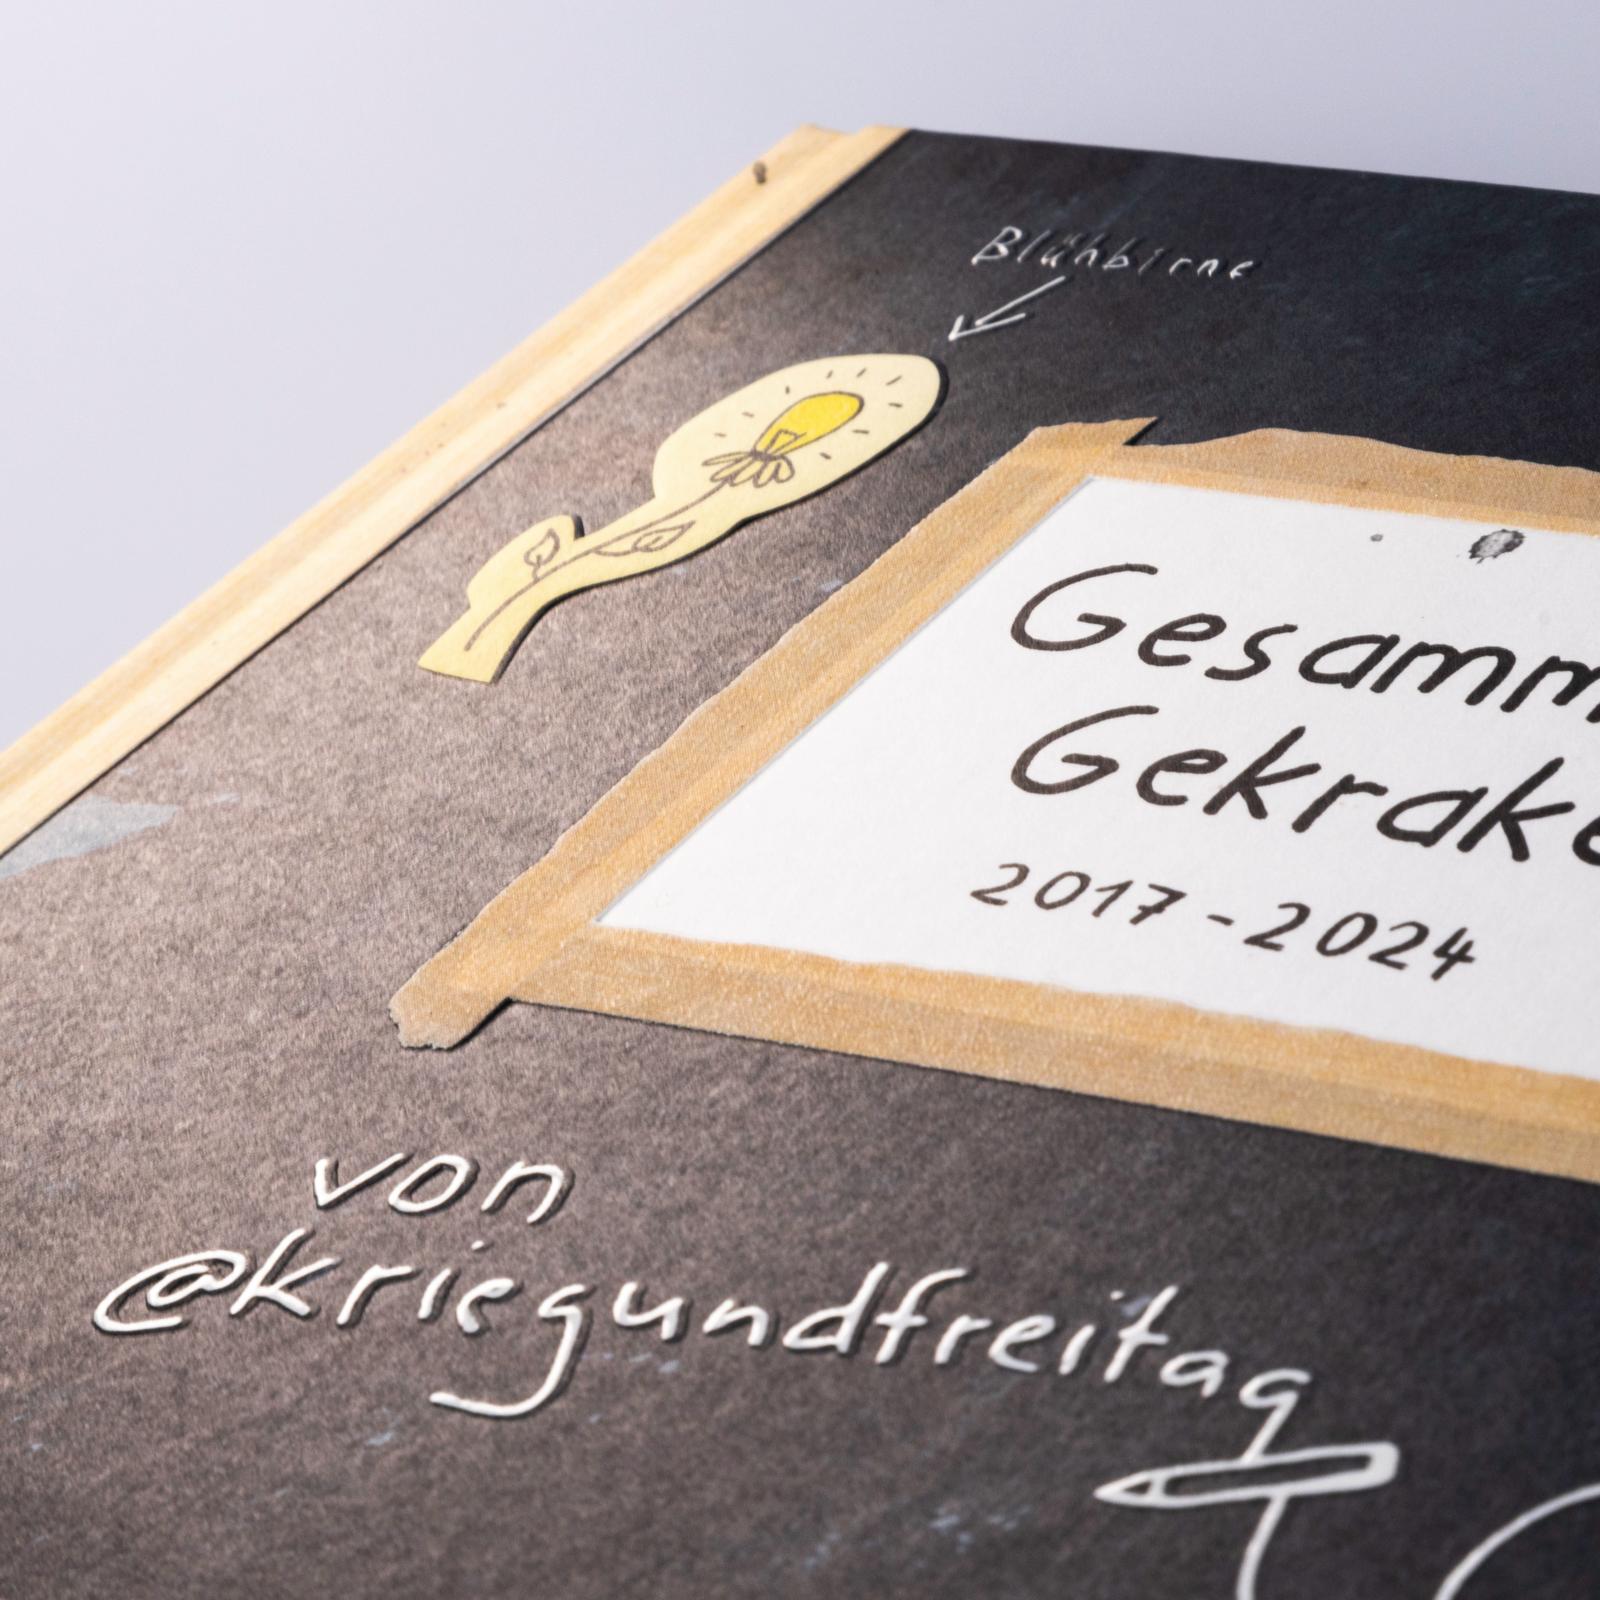 Blühbirne
Gesamm
Gekrake
2017-2024
von
@kriegundfreitag